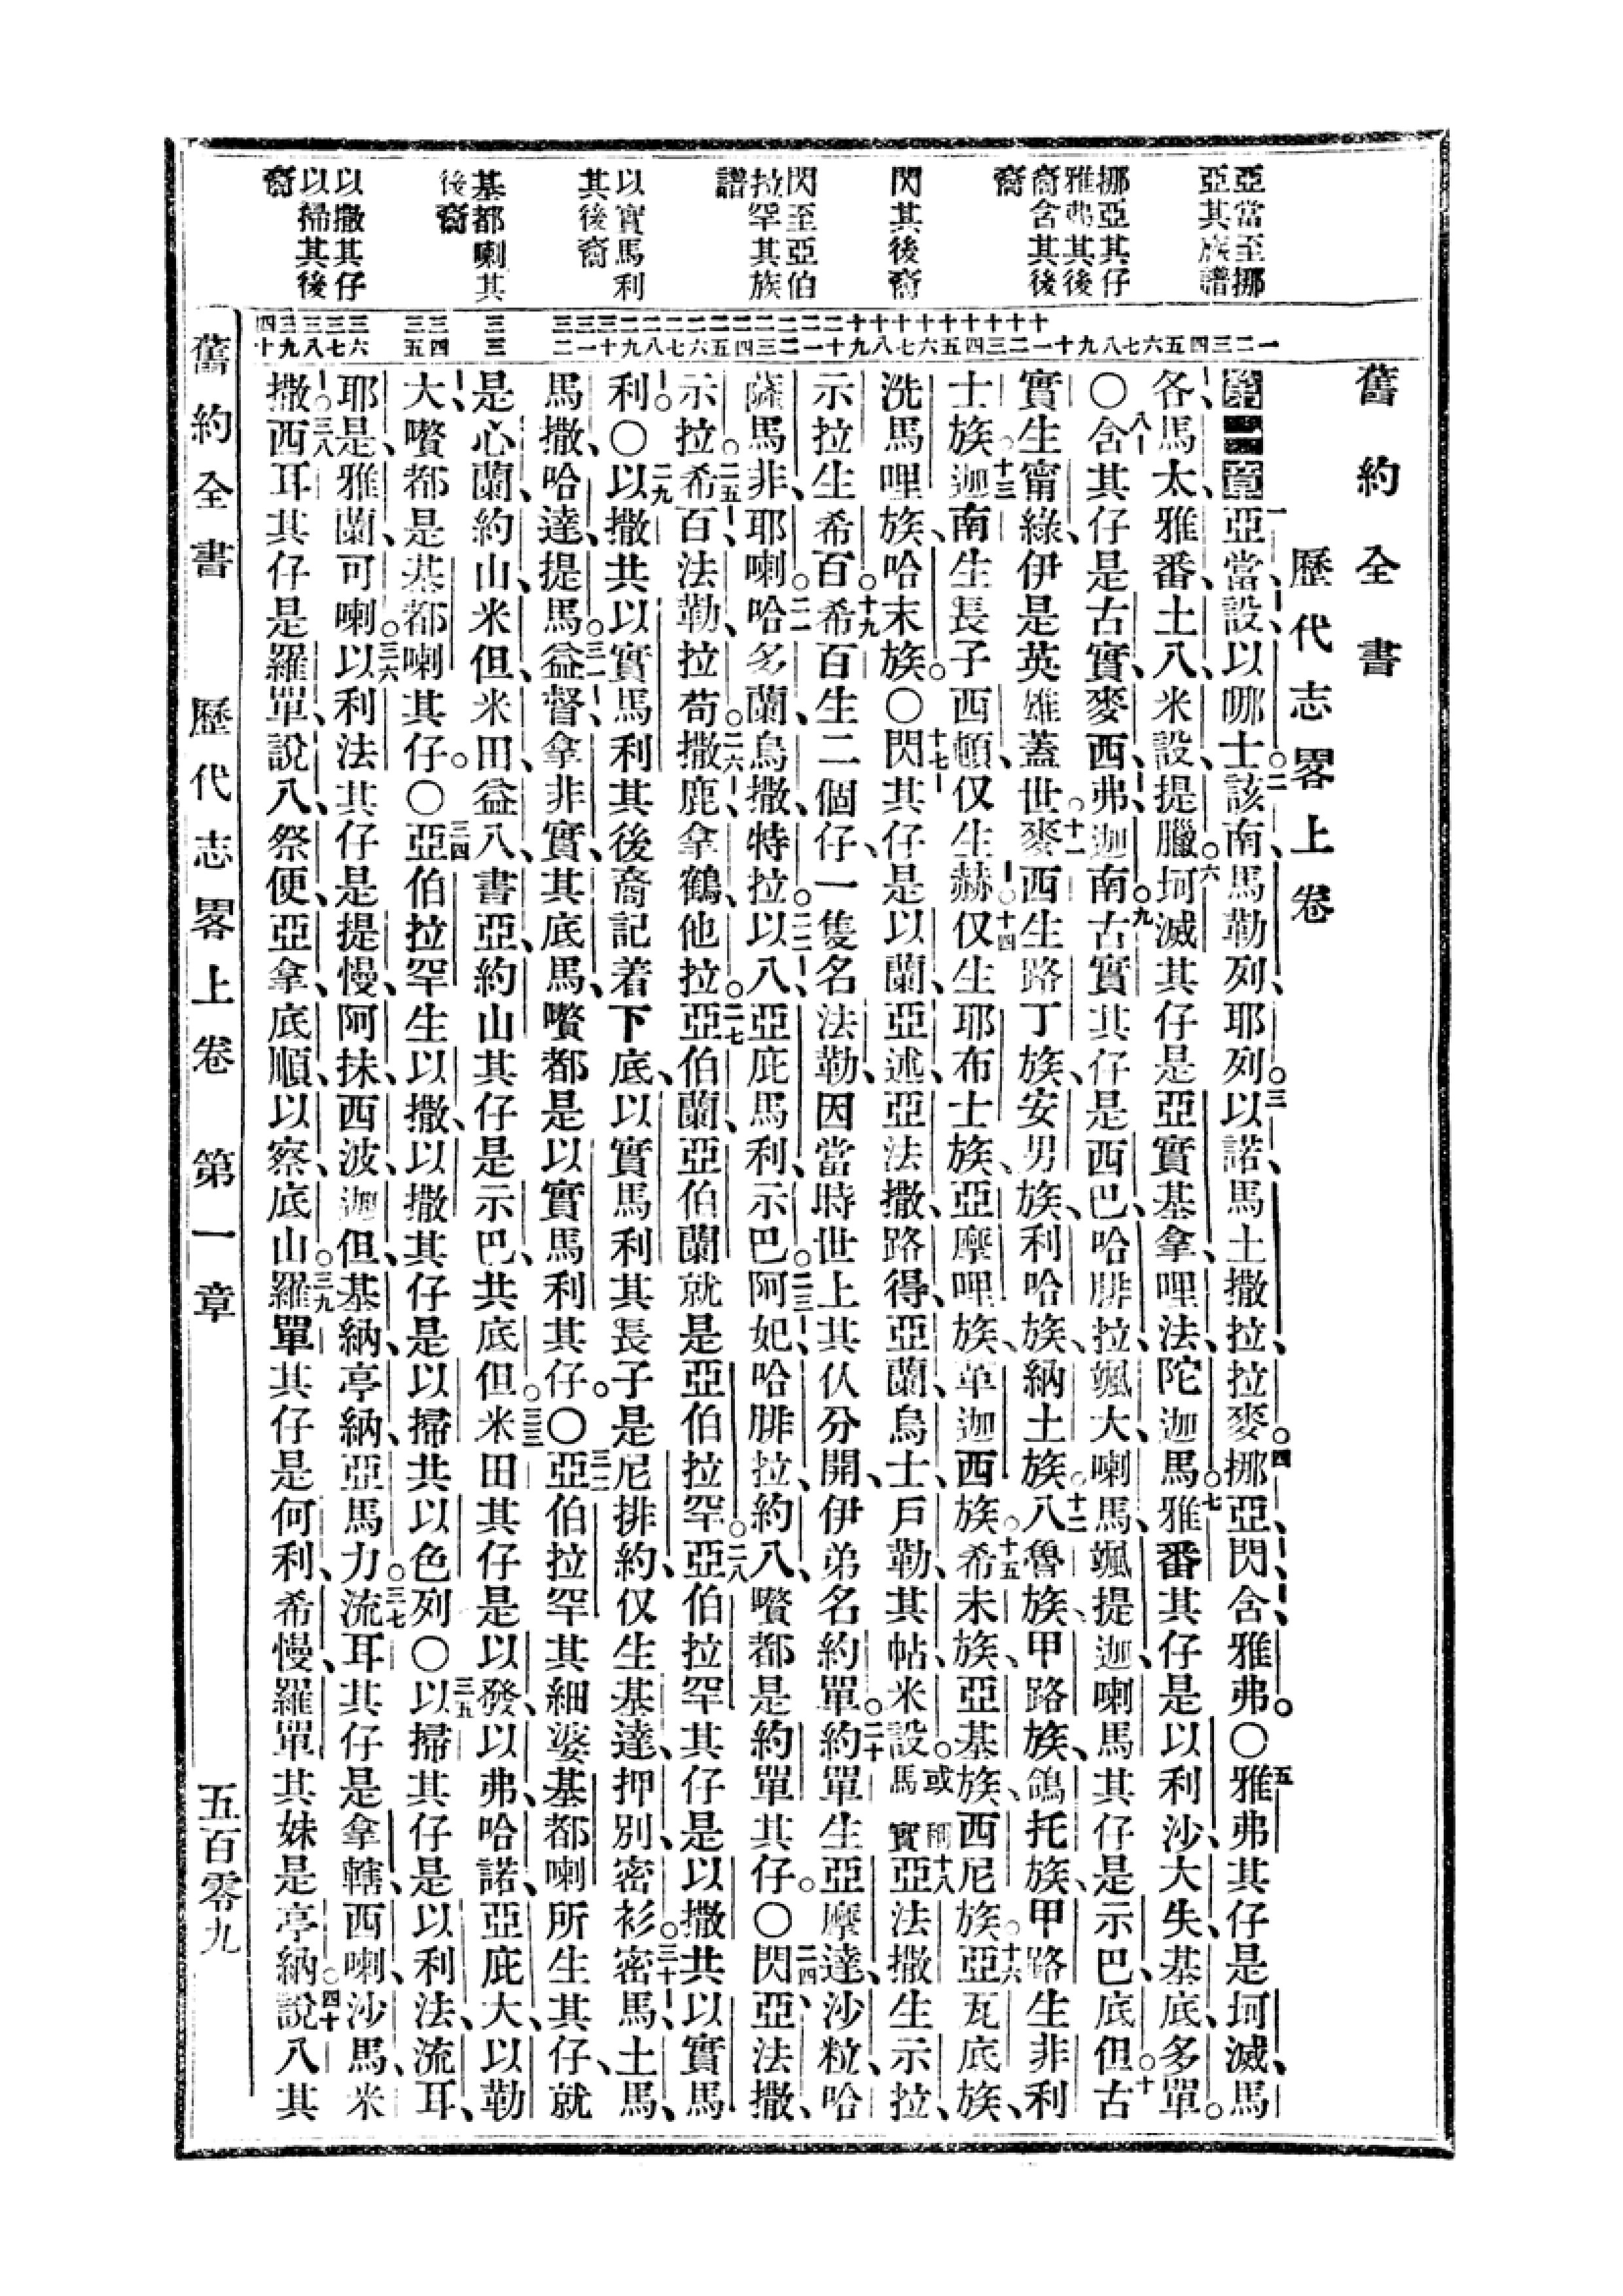 舊約全書
歷代志畧上卷
亞當至挪
亞其族譜
挪亞其仔
雅弗其後
裔含其後
裔
閃其後裔
閃至亞伯
拉罕其族
譜
以實馬利
其後裔
基都喇其
後裔
以撒其仔
以掃其後
裔
第一章一亞當、設、以哪士。二該南、馬勒列、耶列。三以諾、馬土撒拉、拉麥。四挪亞、閃、含、雅弗。〇五雅弗其仔是坷滅、馬
各、馬太、雅番、土八、米設、提臘。六坷滅其仔是亞實基拿、哩法、陀迦馬。七雅番其仔是以利沙、大失、基底、多單。
〇八含其仔是古實、麥西、弗、迦南。九古實其仔是西巴、哈腓拉、颯大、喇馬、颯提迦、喇馬其仔是示巴、底但。十古
實生甯綠、伊是英雄蓋世。十一麥西生路丁族、安男族、利哈族、納土族。十二八魯族、甲路族、鴿托族、甲路生非利
士族。十三迦南生長子西頓、仅生赫。十四仅生耶布士族、亞摩哩族、革迦西族。十五希未族、亞基族、西尼族。十六亞瓦底族、
洗馬哩族、哈末族。〇十七閃其仔是以蘭、亞述、亞法撒、路得、亞蘭、烏士、戶勒、其帖、米設。或稱馬實十八亞法撒生示拉、
示拉生希百。十九希百生二個仔、一隻名法勒、因當時世上其仈分開、伊弟名約單。二十約單生亞摩達、沙粒、哈
薩馬非、耶喇。二一哈多蘭、烏撒、特拉。二二以八、亞庇馬利、示巴。二三阿妃、哈腓拉、約八、嚽都是約單其仔。〇二四閃、亞法撒、
示拉。二五希百、法勒、拉苟。二六撒鹿、拿鶴、他拉。二七亞伯蘭、亞伯蘭就是亞伯拉罕。二八亞伯拉罕其仔是以撒共以實馬
利。〇二九以撒共以實馬利其後裔記着下底、以實馬利其長子是尼排約、仅生基達、押別、密衫。三十密馬、土馬、
馬撒、哈達、提馬。三一益督、拿非實、其底馬、嚽都是以實馬利其仔。〇三二亞伯拉罕其細婆基都喇所生其仔、就
是心蘭、約山、米但、米田、益八、書亞、約山其仔是示巴共底但。三三米田其仔是以發、以弗、哈諾、亞庇大、以勒
大、嚽都是基都喇其仔。〇三四亞伯拉罕生以撒、以撒其仔是以掃共以色列〇三五以掃其仔是以利法、流耳、
耶是、雅蘭、可喇。三六以利法其仔是提慢、阿抹、西波、迦但、基納、亭納、亞馬力。三七流耳其仔是拿轄、西喇、沙馬、米
撒。三八西耳其仔是羅單、說八、祭便、亞拿、底順、以察、底山。三九羅單其仔是何利、希慢、羅單其妹是亭納。四十說八其
舊約全書 歷代志畧上卷 第一章 五百零九